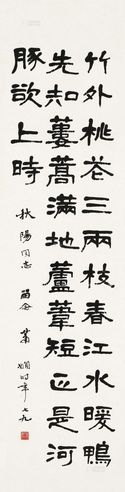 竹外桃花三兩枝春江水暖鴨
先知蔞蒿滿地蘆葦短正是河
豚欲上時
秋陽同志 留念 蕭嫻时年七九